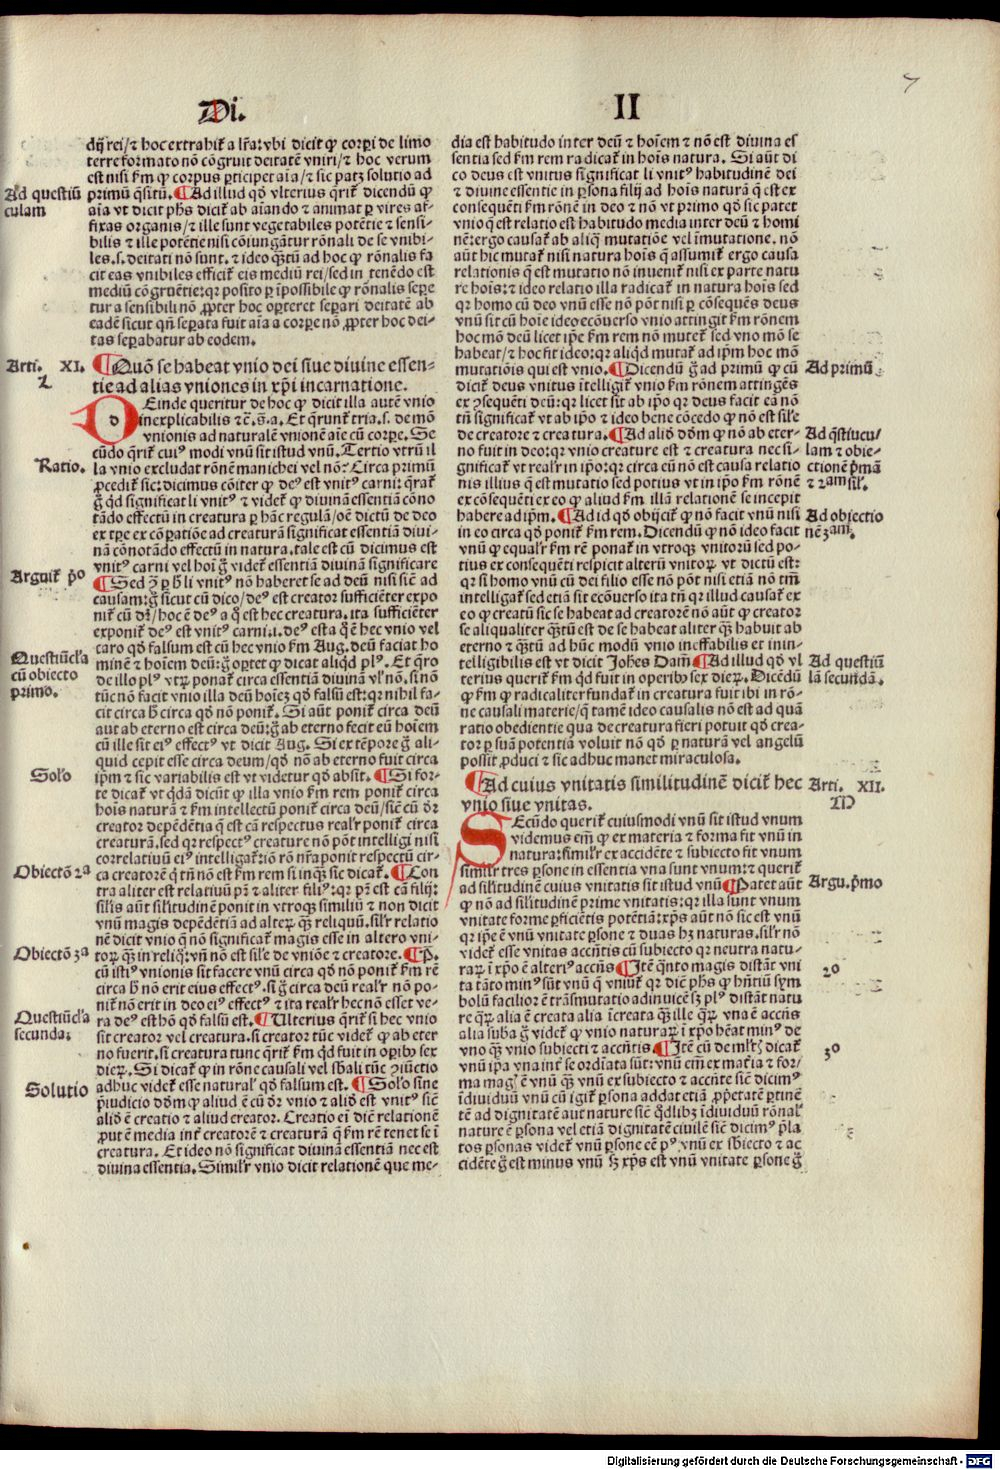 7
Di. II
dū rei/⁊ hoc extrahit̄ a lr̄a:vbi dicit ꝙ corpi de limo
terre formato nō cōgruit deitatē vniri/⁊ hoc verum
est nisi ẜm ꝙ corpus ꝑticipet aīa/⁊ sic patꝫ solutio ad
Ad questiū
culam
primū q̄sitū. ¶Ad illud qd̄ vlterius q̄rit̄ dicendū ꝙ
aīa vt dicit ph̄s dicit̄ ab aīando ⁊ animat ꝑ vires af-
fixas organis/⁊ ille sunt vegetabiles potētie ⁊ sensi-
bilis ⁊ ille potētie nisi cōiungātur rōnali de se vnibi-
les.s. deitati nō sunt. ⁊ ideo q̄ztū ad hoc ꝙ rōnalis fa
cit eas vnibiles efficit̄ eis mediū rei/sed in tenēdo est
mediū cōgruētie:qr posito ꝑ īpossibile ꝙ rōnalis seꝑe
tur a sensibili nō ꝓpter hoc oꝑteret seꝑari deitatē ab
eadē sicut qn̄ seꝑata fuit aīa a corꝑe nō ꝓpter hoc dei-
tas seꝑabatur ab eodem.
Arti. XI.
¶Quō se habeat vnio dei siue diuine essen-
tie ad alias vniones in xp̄i incarnatione.
DEinde queritur de hoc ꝙ dicit illa autē vnio
inexplicabilis ⁊c̄.s.a. Et q̄runt̄ tria.s. de mō
vnionis ad naturalē vnionē aīe cū corꝑe. Se
cūdo q̄rit̄ cuiꝰ modi vnū sit istud vnū. Tertio vtrū il
Ratio.
la vnio excludat rōnē manichei vel nō? Circa primū
ꝓcedit̄ sic:dicimus cōiter ꝙ deꝰ est vnitꝰ carni:q̄rat̄
g̈ qd significat li vnitꝰ ⁊ videt̄ ꝙ diuinā essentiā cōno
tādo effectū in creatura ꝑ hāc regulā/oē dictū de deo
ex tꝑe ex cōꝑatiōe ad creaturā significat essentiā diui-
nā cōnotādo effectū in natura.tale est cū dicimus est
vnitꝰ carni vel hoī g̈ videt̄ essentiā diuinā significare
Arguit̄ pͦ
¶Sed ꝫ ꝑ ḣ li vnitꝰ nō haberet se ad deū nisi siē ad
causam:g̈ sicut cū dico/deꝰ est creator sufficiēter expo
nit̄ cū dr̄/hoc ē deꝰ a q̊ est hec creatura.ita sufficiēter
exponit̄ deꝰ est vnitꝰ carni.i.deꝰ est a q̊ ē hec vnio vel
caro qd̄ falsum est cū hec vnio ẜm Aug.deū faciat ho
Questiūcl̄a
cū obiecto
primo.
minē ⁊ hoīem deū:g̈ oꝑtet ꝙ dicat aliqd̄ plꝰ. Et q̄ro
de illo plꝰ vtꝝ ponat̄ circa essentiā diuinā vl̓ nō.si nō
tūc nō facit vnio illa deū hoīeꝫ qd̄ falsū est:qr nihil fa-
cit circa ḣ circa qd̄ nō ponit̄. Si aūt ponit̄ circa deū
aut ab eterno est circa deū:g̈ ab eterno fecit eū hoīem
cū ille sit eiꝰ effectꝰ vt dicit Aug. Si ex tēpore g̈ ali-
quid cepit esse circa deum/qd̄ nō ab eterno fuit circa
Solͦo
ip̄m ⁊ sic variabilis est vt videtur qd̄ absit. ¶Si for-
te dicat̄ vt q̇dā dicūt ꝙ illa vnio ẜm rem ponit̄ circa
hoīs naturā ⁊ ẜm intellectū ponit̄ circa deū/siē cū dr̄
creator depēdētia q̄ est cā respectus realr̄ ponit̄ circa
creaturā.sed qr respectꝰ creature nō pōt intelligi nisi
correlatiuū eiꝰ intelligat̄:iō rō nr̄a ponit respectū cir-
Obiectō 2ᵃ
ca creatorē q̄ tn̄ nō est ẜm rem si inqꝫ sic dicat̄. ¶Con
tra aliter est relatiuū pr̄ ⁊ aliter filiꝰ:qr pr̄ est cā filij:
silis aūt silitudinē ponit in vtroqꝫ similiū ⁊ non dicit
vnū magis depēdētiā ad alteꝝ q̄ꝫ reliquū.silr̄ relatio
nē dicit vnio q̄ nō significat̄ magis esse in altero vni-
Obiectō 3ᵃ
toꝝ q̄ꝫ in reliq̊:vn̄ nō est sile de vniōe ⁊ creatore. ¶P.
cū istiꝰ vnionis sit facere vnū circa qd̄ nō ponit̄ ẜm rē
circa ḣ nō erit eius effectꝰ.si g̈ circa deū realr̄ nō po-
nit̄ nō erit in deo eiꝰ effectꝰ ⁊ ita realr̄ hec nō esset ve-
Questiūcl̄a
secunda:
ra deꝰ est hō qd̄ falsū est. ¶Ulterius q̄rit̄ si hec vnio
sit creator vel creatura.si creator tūc videt̄ ꝙ ab eter
no fuerit.si creatura tunc q̄rit̄ ẜm qd̄ fuit in opibꝰ sex
dieꝝ. Si dicat̄ ꝙ in rōne causali vel sb̄ali tūc ꝯiūctio
Solutio
adhuc videt̄ esse naturalꝭ qd̄ falsum est. ¶Solͦo sine
p̄iudicio dōm ꝙ aliud ē cū dr̄ vnio ⁊ aliō est vnitꝰ siē
aliō ē creatio ⁊ aliud creator. Creatio ei̅ dic̄ relationē
ꝓut ē media int̄ creatorē ⁊ creaturā q̄ ẜm rē tenet se ī
creatura. Et ideo nō significat diuinā essentiā nec est
diuina essentia. Similr̄ vnio dicit relationē que me-
dia est habitudo inter deū ⁊ hoīem ⁊ nō est diuina es
sentia sed ẜm rem radicat̄ in hoīs natura. Si aūt di
co deus est vnitus significat li vnitꝰ habitudinē dei
⁊ diuine essentie in ꝑsona filij ad hoīs naturā q̄ est ex
consequēti ẜm rōnē in deo ⁊ nō vt primo qd̄ sic patet
vnio q̄ est relatio est habitudo media inter deū ⁊ homi
nē:ergo causat̄ ab aliq̄ mutatiōe vel īmutatione. nō
aūt hic mutat̄ nisi natura hoīs q̄ assumit̄ ergo causa
relationis q̄ est mutatio nō inuenit̄ nisi ex parte natu
re hoīs:⁊ ideo relatio illa radicat̄ in natura hoīs sed
qr homo cū deo vnū esse nō pōt nisi ꝑ cōsequēs deus
vnū sit cū hoīe ideo ecōuerso vnio attingit ẜm rōnem
hoc mō deū licet ip̄e ẜm rem nō mutet̄ sed vno mō se
habeat/⁊ hoc fit ideo:qr aliqd̄ mutat̄ ad ip̄m hoc mō
Ad primū.
mutatiōis qui est vnio. ¶Dicendū g̈ ad primū ꝙ cū
dicit̄ deus vnitus ītelligit̄ vnio ẜm rōnem attingēs
ex ꝯsequēti deū:qr licet sit ab ip̄o qr deus facit eā nō
tn̄ significat̄ vt ab ip̄o ⁊ ideo bene cōcedo ꝙ nō est sile
Ad q̄stiūcu/
lam ⁊ obie-
ctionē p̄mā
⁊ 2ᵃᵐ silꝭ.
de creatore ⁊ creatura. ¶Ad aliō dōm ꝙ nō ab eter-
no fuit in deo:qr vnio creature est ⁊ creatura nec si-
gnificat̄ vt realr̄ in ip̄o:qr circa cū nō est causa relatio
nis illius q̄ est mutatio sed potius vt in ip̄o ẜm rōnē
ex cōsequēti ex eo ꝙ aliud ẜm illā relationē se incepit
Ad obiectio
nē 3ᵃᵐ.
habere ad ip̄m. ¶Ad id qd̄ obijcit̄ ꝙ nō facit vnū nisi
in eo circa qd̄ ponit̄ ẜm rem. Dicendū ꝙ nō ideo facit
vnū ꝙ equalr̄ ẜm rē ponat̄ in vtroqꝫ vnitorū sed po-
tius ex consequēti respicit alterū vnitoꝝ vt dictū est:
qr si homo vnū cū dei filio esse nō pōt nisi etiā nō tm̄
intelligat̄ sed etiā sit ecōuerso ita tn̄ qr illud causat̄ ex
eo ꝙ creatū sic se habeat ad creatorē nō aūt ꝙ creator
se aliqualiter q̄ztū est de se habeat aliter q̄ꝫ habuit ab
eterno ⁊ q̄ztū ad hūc modū vnio ineffabilis et inin-
Ad questiū
lā secundā.
telligibilis est vt dicit Joh̄es Dam̄ ¶Ad illud qd̄ vl
terius querit̄ ẜm qd fuit in operibꝰ sex dieꝝ. Dicēdū
ꝙ ẜm ꝙ radicaliter fundat̄ in creatura fuit ibi in rō-
ne causali materie/q̄ tamē ideo causalis nō est ad quā
ratio obedientie qua de creatura fieri potuit qd̄ crea-
tor ꝑ suā potentiā voluit nō qd̄ ꝑ naturā vel angelū
possit ꝓduci ⁊ sic adhuc manet miraculosa.
Arti. XII.
¶Ad cuius vnitatis similitudinē dicit̄ hec
vnio siue vnitas.
SEcūdo querit̄ cuiusmodi vnū sit istud vnum
videmus eīm ꝙ ex materia ⁊ forma fit vnū in
natura:similr̄ ex accidēte ⁊ subiecto fit vnum
similr̄ tres ꝑsone in essentia vna sunt vnum:⁊ querit̄
Argu.p̄mo
ad silitudinē cuius vnitatis sit istud vnū ¶Patet aūt
ꝙ nō ad silitudinē prime vnitatis:qr illa sunt vnum
vnitate forme ꝑficiētis potētiā:xp̄s aūt nō sic est vnū
qr ip̄e ē vnū vnitate ꝑsone ⁊ duas hꝫ naturas.silr̄ nō
videt̄ esse vnitas accn̄tis cū subiecto qr neutra natu-
2ͦ
raꝝ ī xp̄o ē alteriꝰ accn̄s ¶Itē q̄nto magis distāt vni
ta tāto minꝰ sūt vnū q̄ vniūt̄ qr dic̄ ph̄s ꝙ hn̄tiū sym
bolū facilior ē trāsmutatio adinuicē sꝫ plꝰ distāt natu
re q̄ꝝ alia ē creata alia īcreata q̄ꝫ ille q̄ꝝ vna ē accn̄s
alia suba g̈ videt̄ ꝙ vnio naturaꝝ ī xp̄o hēat minꝰ de
3ͦ
vno q̄ꝫ vnio subiecti ⁊ accn̄tis. ¶Itē cū de ml̓tꝭ dicat̄
vnū ip̄a vna int̄ se ordīata sūt: vnū eīm ex mat̄ia ⁊ for/
ma magꝭ ē vnū q̄ꝫ vnū ex subiecto ⁊ accn̄te siē dicimꝰ
īdiuiduū vnū cū igit̄ ꝑsona addat etiā ꝓp̄etatē ꝑtinē
tē ad dignitatē aut nature siē q̄dlibꝫ īdiuiduū rōnalꝭ
nature ē ꝑsona vel etiā dignitatē ciuilē siē dicimꝰ p̄la
tos ꝑsonas videt̄ vnū ꝑsone cē pꝰ vnū ex sb̄iecto ⁊ ac
cidēte g̈ est minus vnū sꝫ xp̄s est vnū vnitate ꝑsone g̈
Digitalisierung gefördert durch die Deutsche Forschungsgemeinschaft - DFG